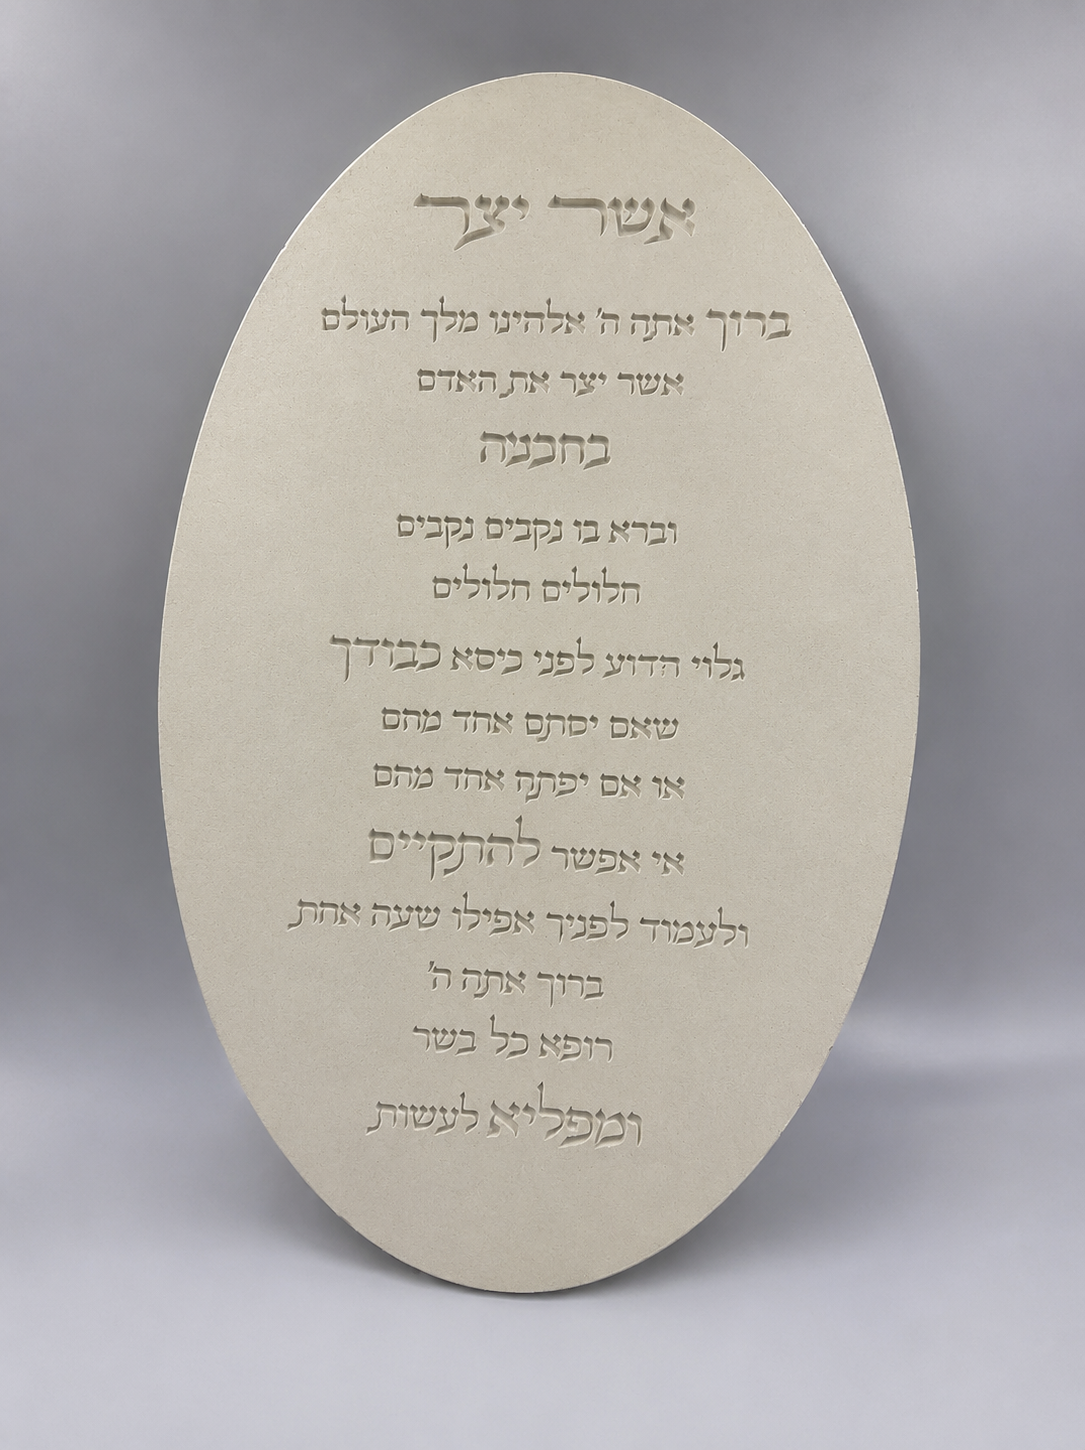 אשר יצר
ברוך אתה ה' אלהינו מלך העולם
אשר יצר את האדם
בחכמה
וברא בו נקבים נקבים
חלולים חלולים
גלוי הדוע לפני כיסא כבודך
שאם יסתם אחד מהם
או אם יפתח אחד מהם
אי אפשר להתקיים
ולעמוד לפניך אפילו שעה אחת
ברוך אתה ה'
רופא כל בשר
ומפליא לעשות